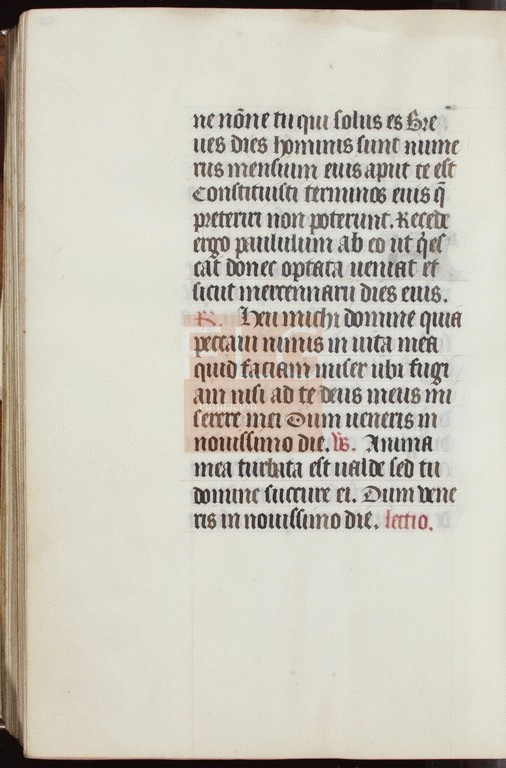 ne nõne tu qui solus es Bre
ues dies hominis sunt nume
rus mensium eius aput te est
Constituisti terminos eius q̃
preteriri non poterunt. Recede
ergo paululum ab eo ut q̃es
cat donec optata ueniat et
sicut mercennarii dies eius.
R. Heu michi domine quia
peccaui nimis in uita mea
quid faciam miser ubi fugi
am nisi ad te deus meus mi
serere mei Dum ueneris in
nouissimo die. Vs. Anima
mea turbata est ualde sed tu
domine succure ei. Dum vene
ris in nouissimo die. lectio.